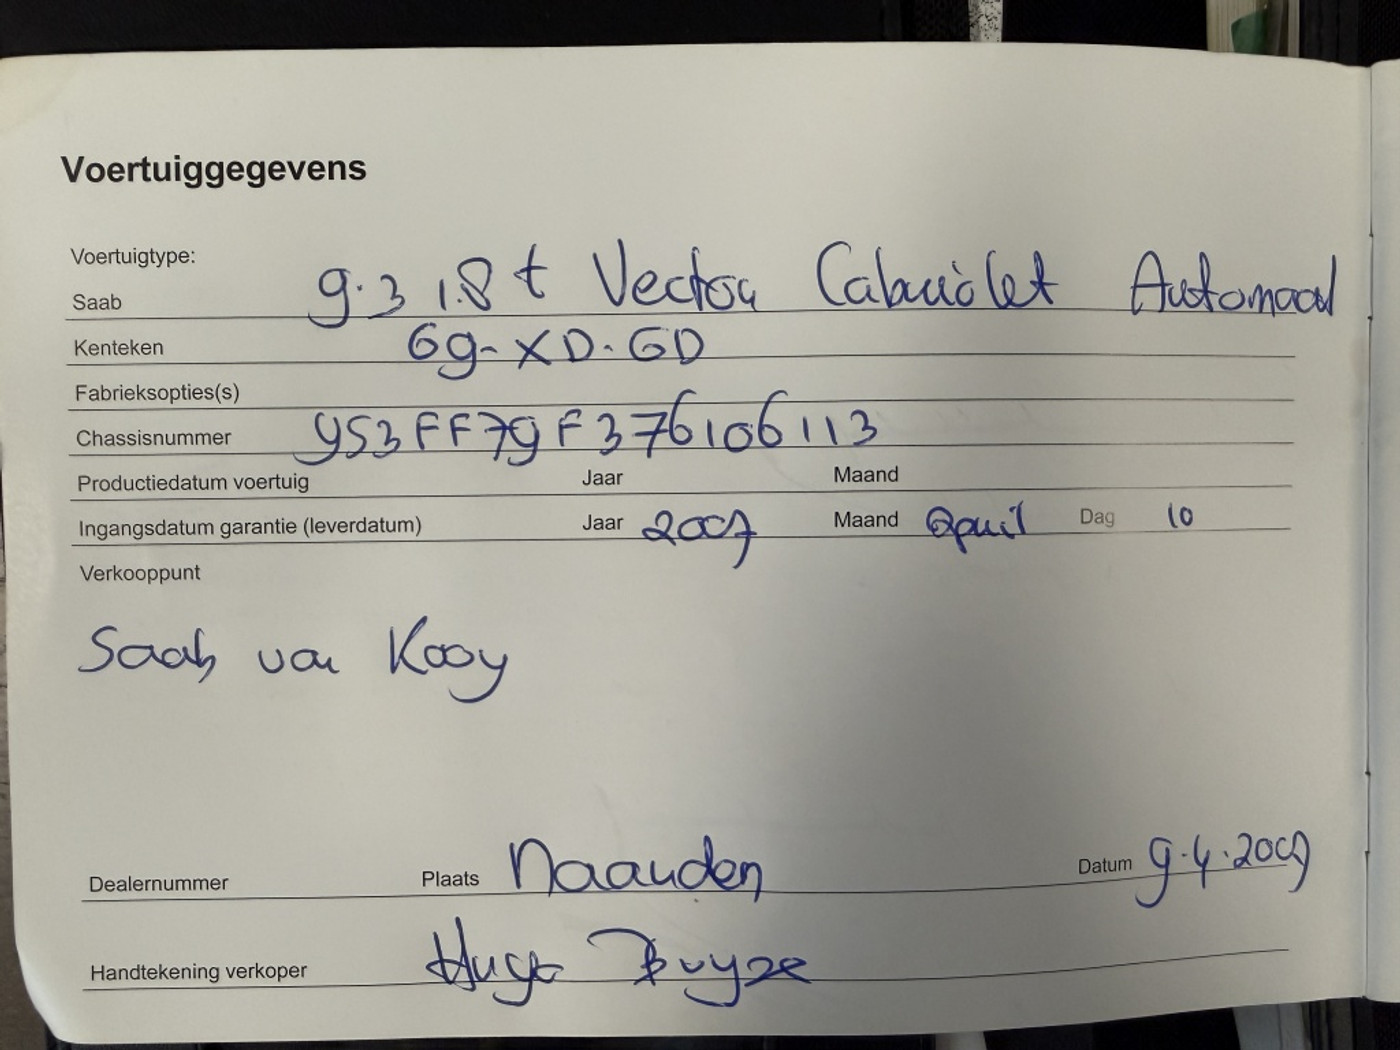 Voertuiggegevens
Voertuigtype:
Saab 9.3 1.8 t Vector Cabriolet Automaat
Kenteken 69-XD-GD
Fabrieksopties(s)
Chassisnummer YS3FF79F376106113
Productiedatum voertuig Jaar Maand
Ingangsdatum garantie (leverdatum) Jaar 2007 Maand april Dag 10
Verkooppunt
Saab van Kooy
Dealernummer Plaats Naarden Datum 9.4.2007
Handtekening verkoper Hugo Buyze